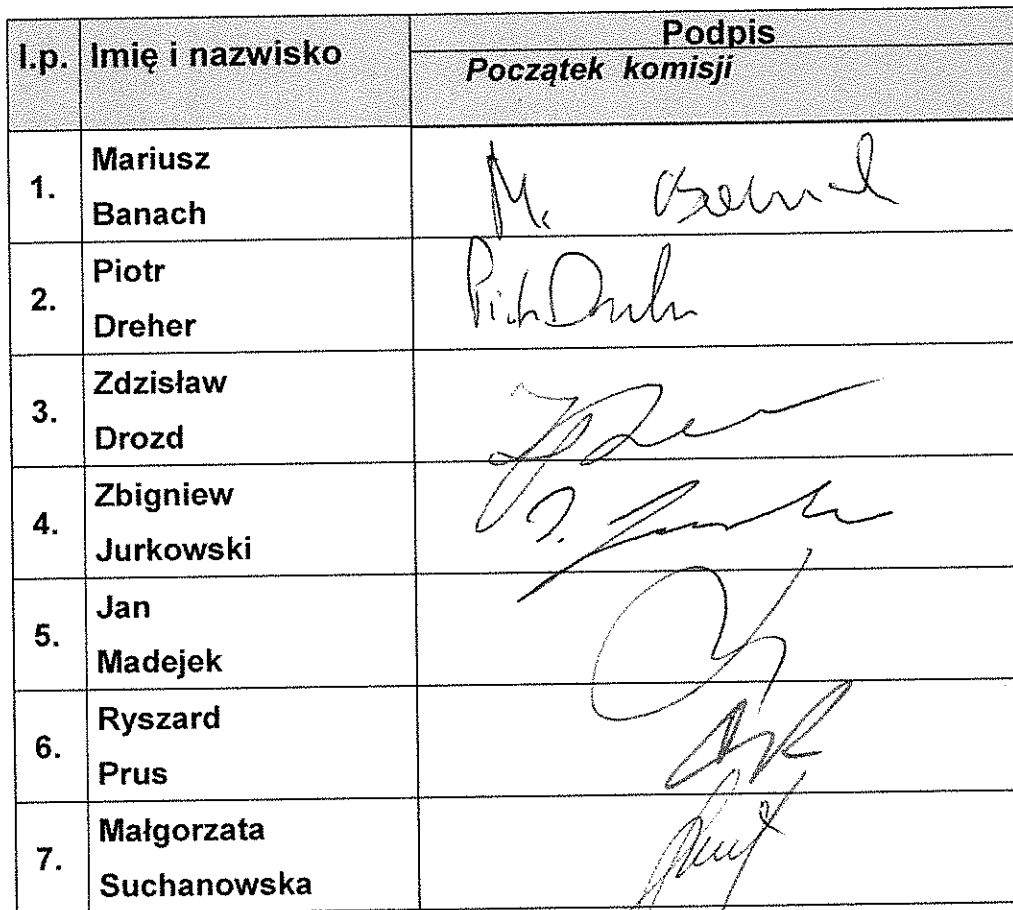 l.p. Imię i nazwisko Podpis
Początek komisji
1. Mariusz
Banach
M. Banach
2. Piotr
Dreher
Piotr Dreher
3. Zdzisław
Drozd
4. Zbigniew
Jurkowski
5. Jan
Madejek
6. Ryszard
Prus
7. Małgorzata
Suchanowska